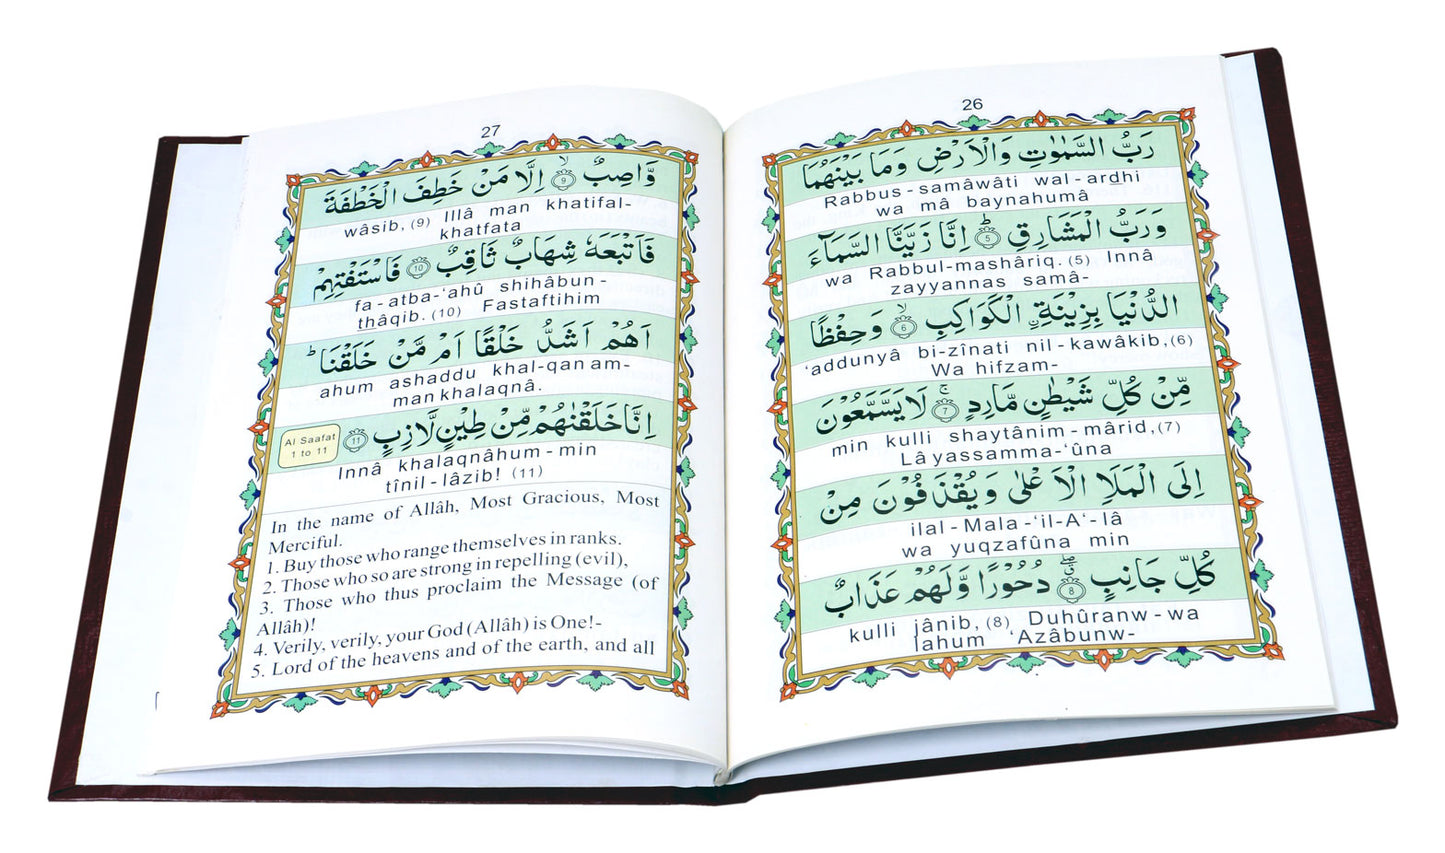 26
رَبُّ السَّمٰوٰتِ وَالْاَرْضِ وَمَا بَيْنَهُمَا
Rabbus-samâwâti wal-ardhi
wa mâ baynahumâ
وَرَبُّ الْمَشَارِقِ ؕ ۵ اِنَّا زَيَّنَّا السَّمَآءَ
wa Rabbul-mashâriq. (5) Innâ
zayyannas samâ-
الدُّنْيَا بِزِيْنَةِ ِۨالْكَوَاكِبِ ۙ ۶ وَحِفْظًا
‘addunyâ bi-zînati nil-kawâkib, (6)
Wa hifzam-
مِّنْ كُلِّ شَيْطٰنٍ مَّارِدٍ ۚ ۷ لَا يَسَّمَّعُوْنَ
min kulli shaytânim-mârid, (7)
Lâ yassamma-‘ûna
اِلَى الْمَلَاِ الْاَعْلٰى وَيُقْذَفُوْنَ مِنْ
ilal-Mala-‘il-A‘-lâ
wa yuqzafûna min
كُلِّ جَانِبٍ ۖق ۸ دُحُوْرًا وَّلَهُمْ عَذَابٌ
kulli jânib, (8) Duhûranw-wa
lahum ‘Azâbunw-
27
وَّاصِبٌ ۙ ۹ اِلَّا مَنْ خَطِفَ الْخَطْفَةَ
wâsib, (9) Illâ man khatifal-
khatfata
فَاَتْبَعَهٗ شِهَابٌ ثَاقِبٌ ۱۰ فَاسْتَفْتِهِمْ
fa-atba-‘ahû shihâbun-
thâqib. (10) Fastaftihim
اَهُمْ اَشَدُّ خَلْقًا اَمْ مَّنْ خَلَقْنَا ؕ
ahum ashaddu khal-qan am-
man khalaqnâ.
اِنَّا خَلَقْنٰهُمْ مِّنْ طِيْنٍ لَّازِبٍ ۱۱
Al Saafat
1 to 11
Innâ khalaqnâhum-min
tînil-lâzib! (11)
In the name of Allâh, Most Gracious, Most
Merciful.
1. Buy those who range themselves in ranks.
2. Those who so are strong in repelling (evil),
3. Those who thus proclaim the Message (of
Allâh)!
4. Verily, verily, your God (Allâh) is One!-
5. Lord of the heavens and of the earth, and all